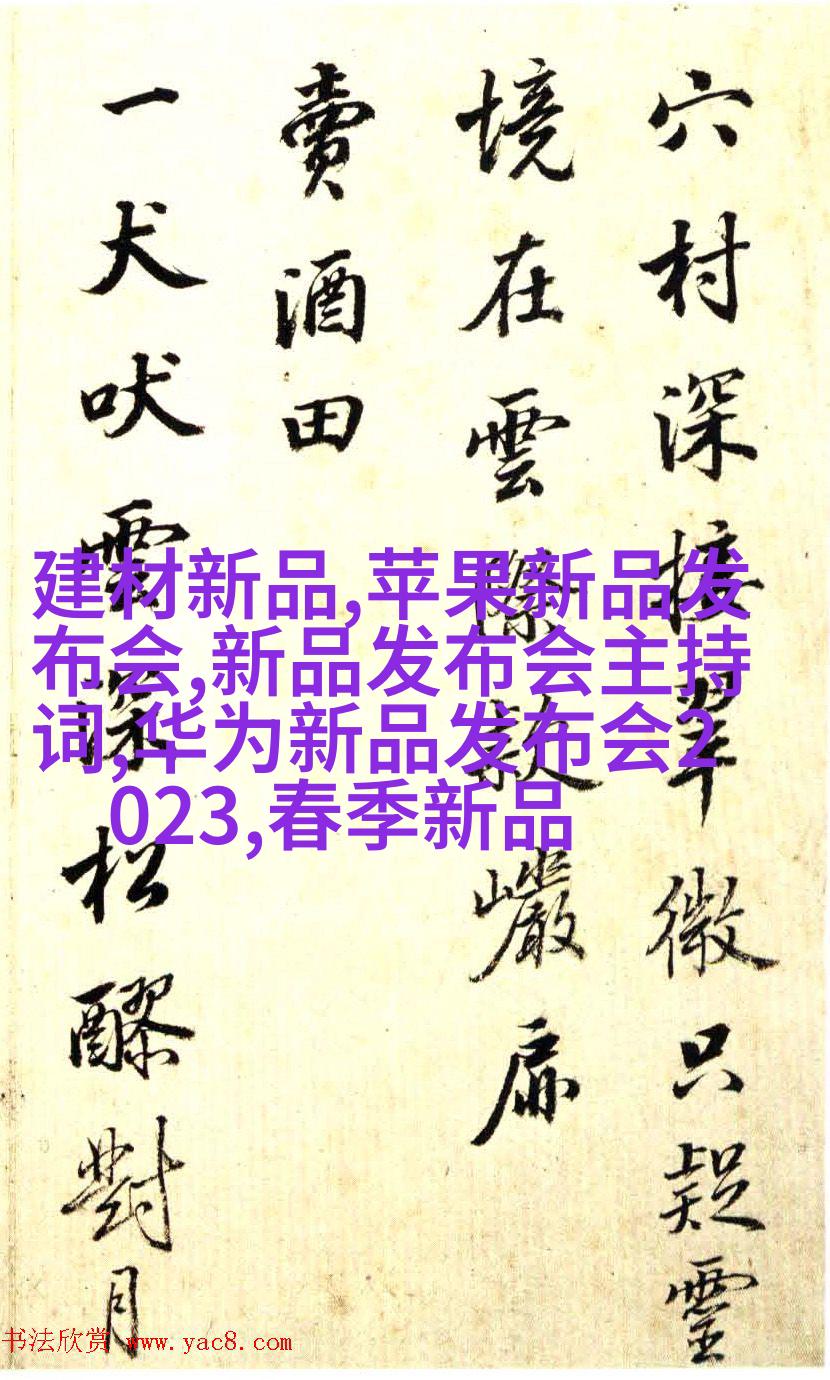 穴村深接翠微只疑靈
境在雲際敲巖扉
賣酒田
一犬吠雲深松醪對月
建材新品,苹果新品发
布会,新品发布会主持
词,华为新品发布会2
023,春季新品
书法欣赏 www.yac8.com